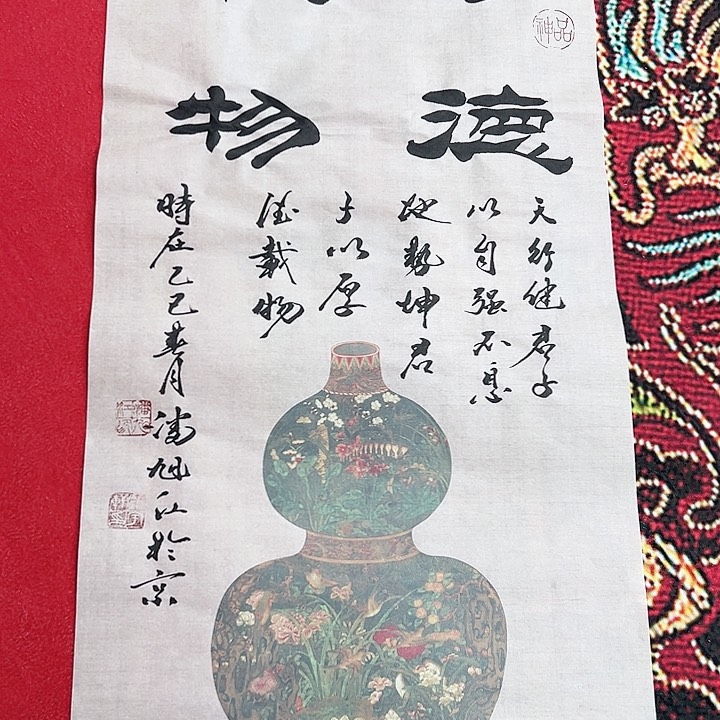 神品
德物
天行健君子
以自强不息
地勢坤君
子以厚
德載物
時在乙巳春月潘旭江於京